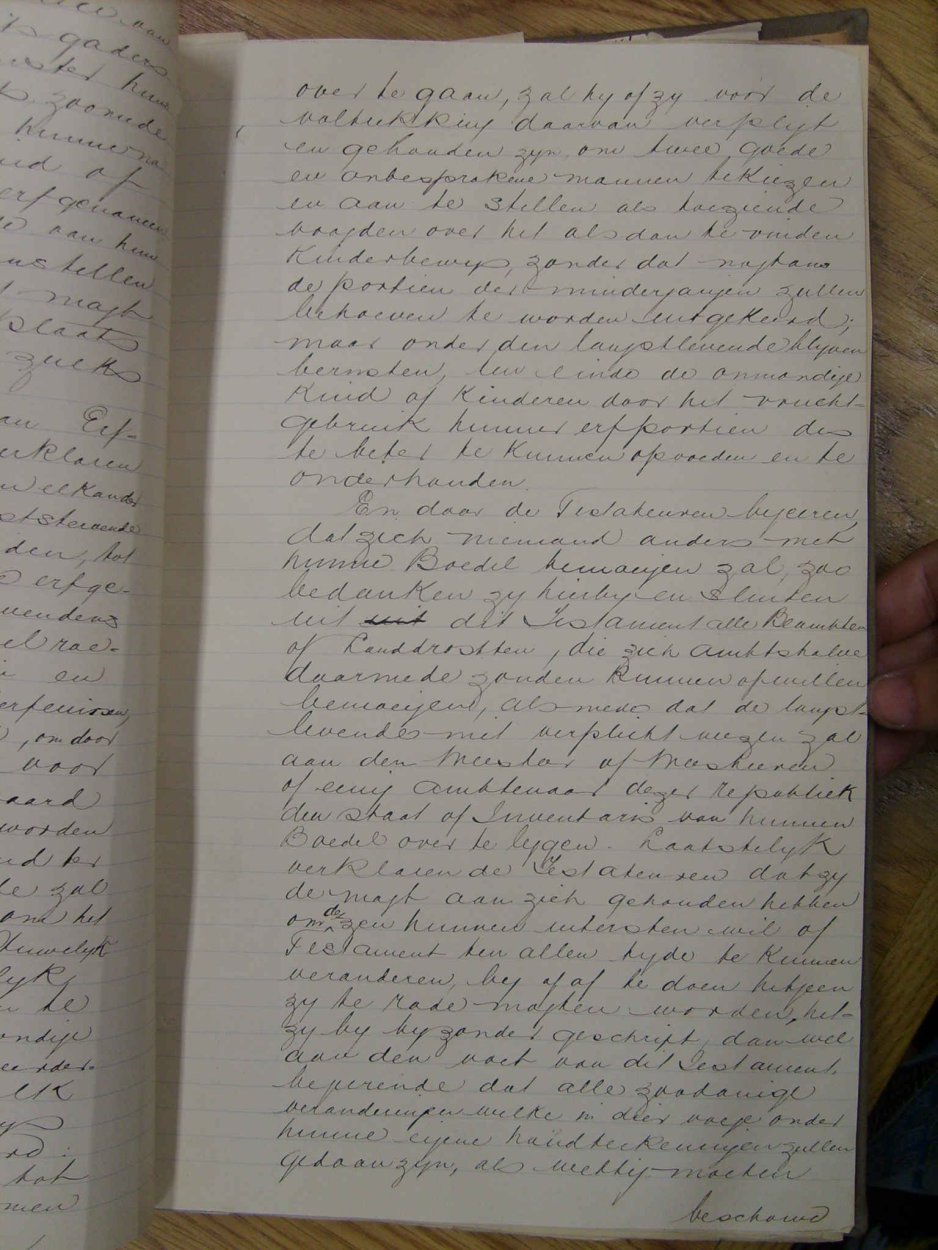 gaders
zoomede
of
erfgenamen
van hun
nstellen
magt
plaats
zulks
an Erf-
erklaren
elkander
ststervende
den, tot
erfge-
el rae-
en
erfenissen,
, om door
voor
aard
worden
ter
de zal
om het
Huwelyk
lyk
te
ondige
lk
tot
over te gaan, zal hy of zy voor de
voltrekking daarvan verpligt
en gehouden zyn om twee goede
en onbesprokene mannen te kiezen
en aan te stellen als toeziende
voogden over het alsdan te vinden
Kinderbewys, zonder dat nogtans
de portien der minderjarigen zullen
behoeven te worden uitgekeerd;
maar onder den langstlevende blyven
berusten, ten einde de onmondige
Kind of Kinderen door het vrucht-
gebruik hunner erfportien des
te beter te kunnen opvoeden en te
onderhouden.
En daar de Testateuren begeeren,
dat zich niemand anders met
hunne Boedel bemoeijen zal, zoo
bedanken zy hierby en sluiten
uit uit dit Testament alle Beambten
of Landdrosten, die zich ambtshalve
daarmede zouden kunnen of willen
bemoeijen, alsmede dat de langst-
levende niet verplicht wezen zal
aan den Meester of Meesteren
of eenig ambtenaar dezer republiek
den staat of Inventaris van hunnen
Boedel over te leggen. Laatstelyk
verklaren de Testateuren dat zy
de magt aan zich gehouden hebben
om dezen hunnen uitersten wil of
Testament ten allen tyde te kunnen
veranderen, by of af te doen hetgeen
zy te rade mogten worden, het-
zy by byzonder geschrift, dan wel
aan den voet van dit Testament
begeerende dat alle zoodanige
veranderingen welke in dier voege onder
hunne eigene handteekeningen zullen
gedaan zyn, als wettig moeten
beschouwd